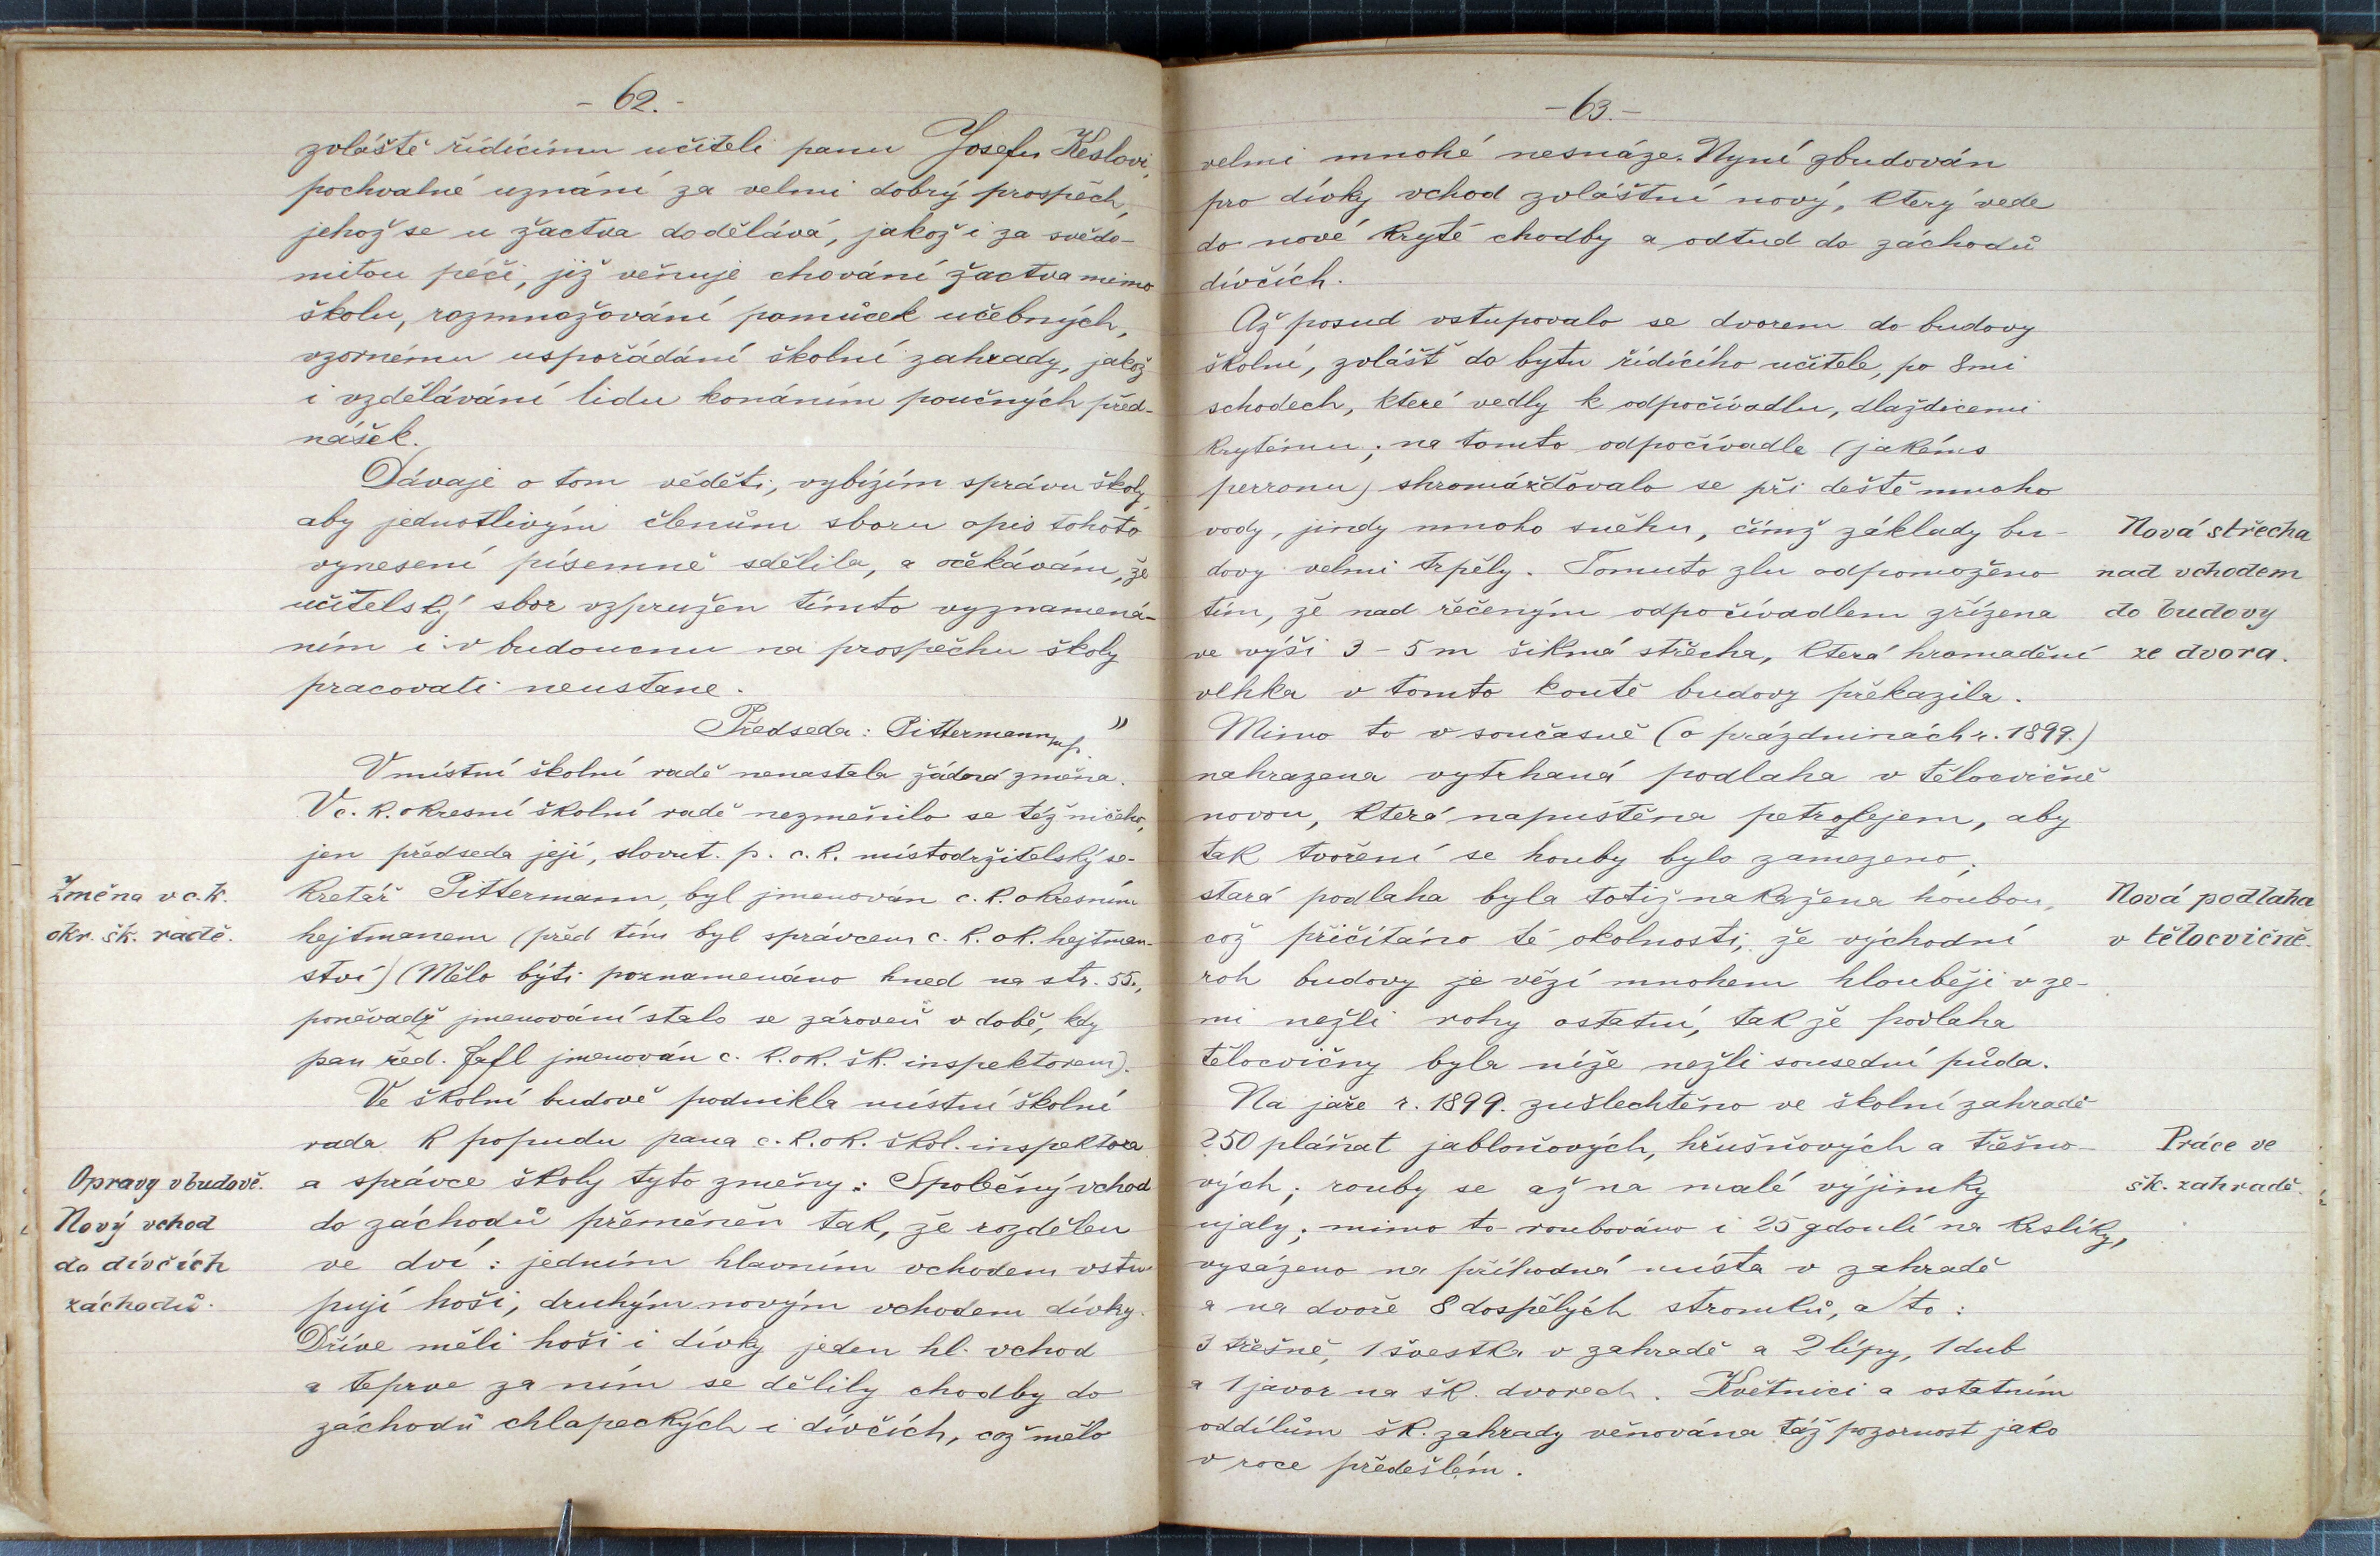 - 62. -
zvláště řídícímu učiteli panu Josefu Keslovi,
pochvalné uznání za velmi dobrý prospěch,
jehož se u žactva dodělává, jakož i za svědo-
mitou péči, již věnuje chování žactva mimo
školu, rozmnožování pomůcek učebných,
vzornému uspořádání školní zahrady, jakož
i vzdělávání lidu konáním poučných před-
nášek.
Dávaje o tom věděti, vybízím správu školy,
aby jednotlivým členům sboru opis tohoto
vynesení písemně sdělila, a očekávám, že
učitelský sbor vzpružen tímto vyznamená-
ním i v budoucnu na prospěchu školy
pracovati neustane.
Předseda: Pittermann mp. "
V místní školní radě nenastala žádná změna.
V c. k. okresní školní radě nezměnilo se též ničeho,
jen předseda její, slovut. p. c. k. místodržitelský se-
Změna v c. k.
okr. šk. radě.
kretář Pittermann, byl jmenován c. k. okresním
hejtmanem (před tím byl správcem c. k. ok. hejtman-
ství) (Mělo býti poznamenáno hned na str. 55.,
poněvadž jmenování stalo se zároveň v době, kdy
pan řed. Fafl jmenován c. k. ok. šk. inspektorem).
Ve školní budově podnikla místní školní
rada k popudu pana c. k. ok. škol. inspektora
Opravy v budově.
Nový vchod
do dívčích
záchodů.
a správce školy tyto změny: Společný vchod
do záchodů přeměněn tak, že rozdělen
ve dví: jedním hlavním vchodem vstu-
pují hoši, druhým novým vchodem dívky.
Dříve měli hoši i dívky jeden hl. vchod
a teprve za ním se dělily chodby do
záchodů chlapeckých i dívčích, což mělo
- 63. -
velmi mnohé nesnáze. Nyní zbudován
pro dívky vchod zvláštní nový, který vede
do nové kryté chodby a odtud do záchodů
dívčích.
Až posud vstupovalo se dvorem do budovy
školní, zvlášť do bytu řídícího učitele, po 8mi
schodech, které vedly k odpočívadlu, dlaždicemi
krytému; na tomto odpočívadle (jakéms
perronu) shromážďovalo se při deště mnoho
vody, jindy mnoho sněhu, čímž základy bu-
dovy velmi trpěly. Tomuto zlu odpomoženo
tím, že nad řečeným odpočívadlem zřízena
ve výši 3 - 5 m šikmá střecha, která hromadění
vlhka v tomto koutě budovy překazila.
Nová střecha
nad vchodem
do budovy
ze dvora.
Mimo to v současně (o prázdninách r. 1899.)
nahrazena vytrhaná podlaha v tělocvičně
novou, která napuštěna petrolejem, aby
tak tvoření se houby bylo zamezeno;
stará podlaha byla totiž nakažena houbou,
což přičítáno té okolnosti, že východní
Nová podlaha
v tělocvičně.
roh budovy je vězí mnohem hlouběji v ze-
mi nežli rohy ostatní, takže podlaha
tělocvičny byla níže nežli sousední půda.
Na jaře r. 1899. zušlechtěno ve školní zahradě
250 pláňat jabloňových, hrušňových a třešňo-
vých; rouby se až na malé výjimky
Práce ve
šk. zahradě.
ujaly; mimo to roubováno i 25 gdoulí na krslíky,
vysázeno na příhodná místa v zahradě
a na dvoře 8 dospělých stromků, a to:
3 třešně, 1 švestka v zahradě a 2 lípy, 1 dub
a 1 javor na šk. dvorech. Květnici a ostatním
oddílům šk. zahrady věnována táž pozornost jako
v roce předešlém.